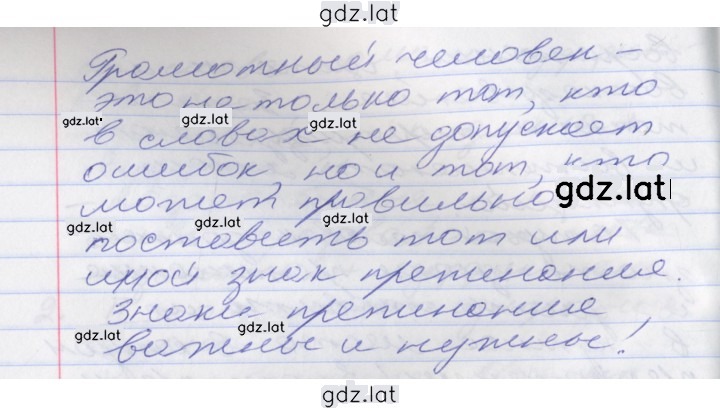 gdz.lat
Грамотный человек –
это не только тот, кто
gdz.lat
gdz.lat
gdz.lat
в словах не допускает
ошибок, но и тот, кто
gdz.lat
может правильно
gdz.lat
gdz.lat
gdz.lat
поставить тот или
иной знак препинания.
Знаки препинания
gdz.lat
gdz.lat
gdz.lat
важны и нужны!
gdz.lat